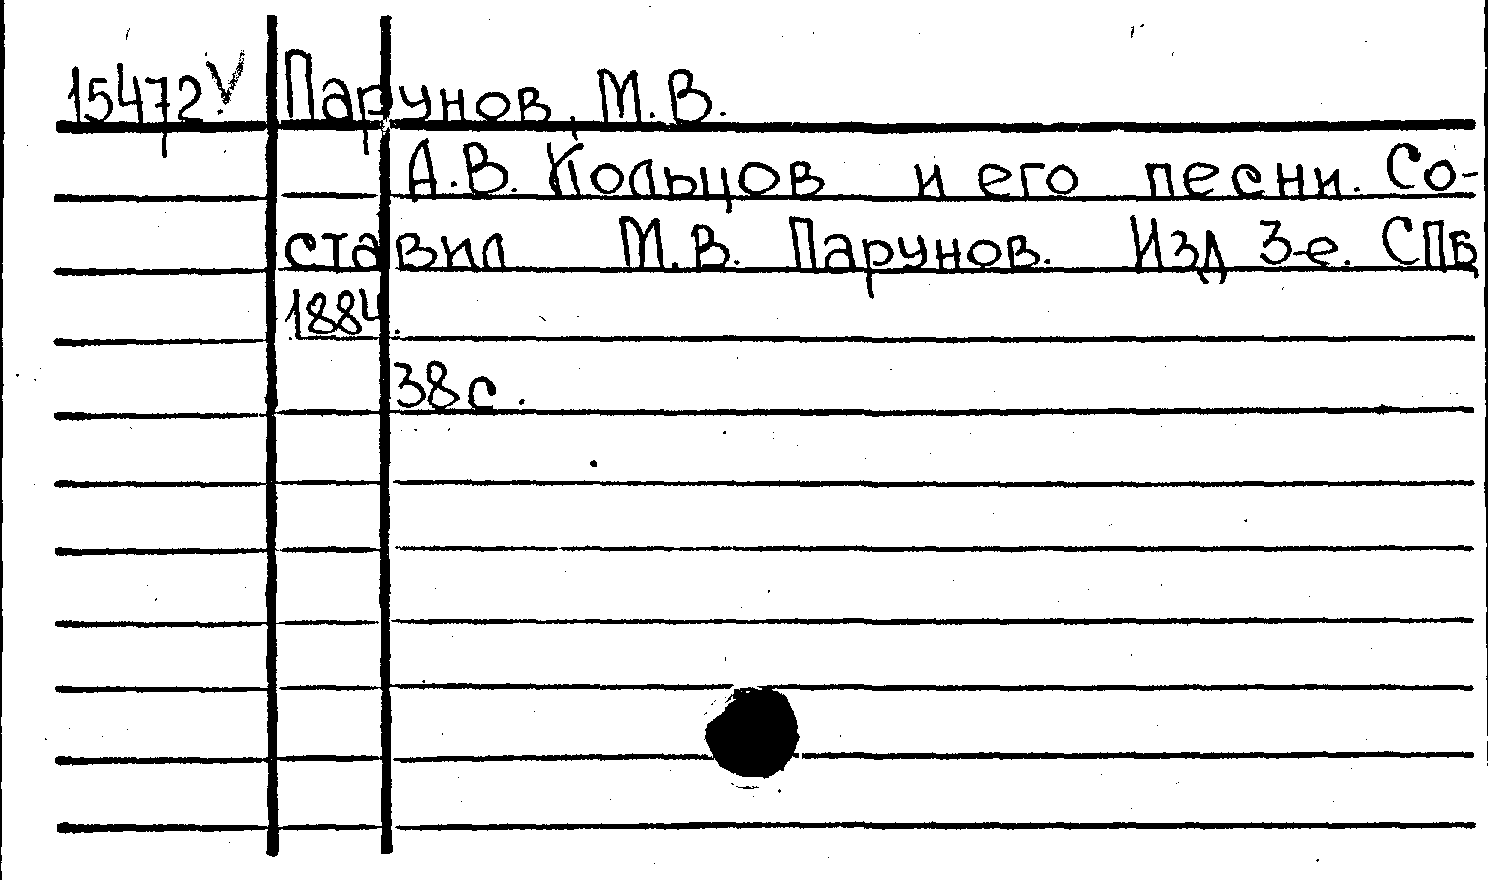 15472 V Парунов, М.В.
А.В. Кольцов и его песни. Со-
ставил М.В. Парунов. Изд 3-е. СПБ
1884.
38 с.